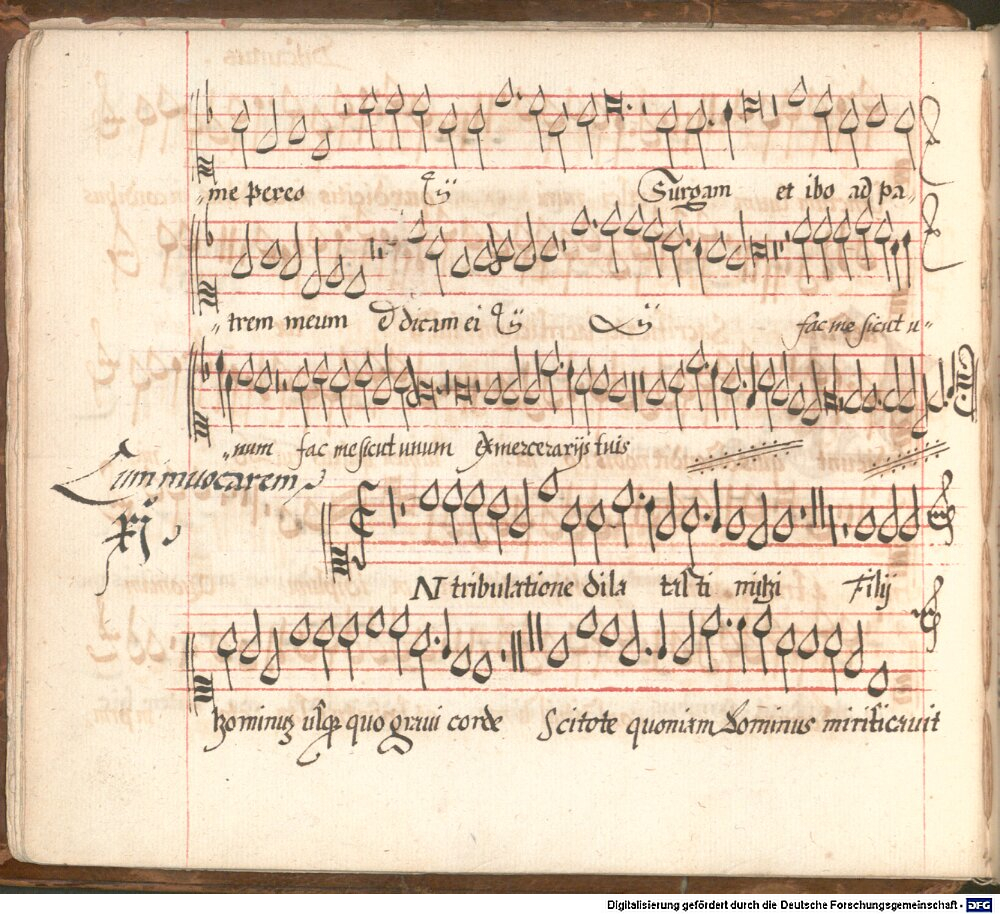 me pereo ij Surgam et ibo ad pa-
trem meum & dicam ei ij ij fac me sicut u-
num fac me sicut unum ex mercenarijs tuis
Cum invocarem
xj
IN tribulatione dila tasti mihi Filij
hominum usq quo gravi corde Scitote quoniam Dominus mirificavit
Digitalisierung gefördert durch die Deutsche Forschungsgemeinschaft - DFG